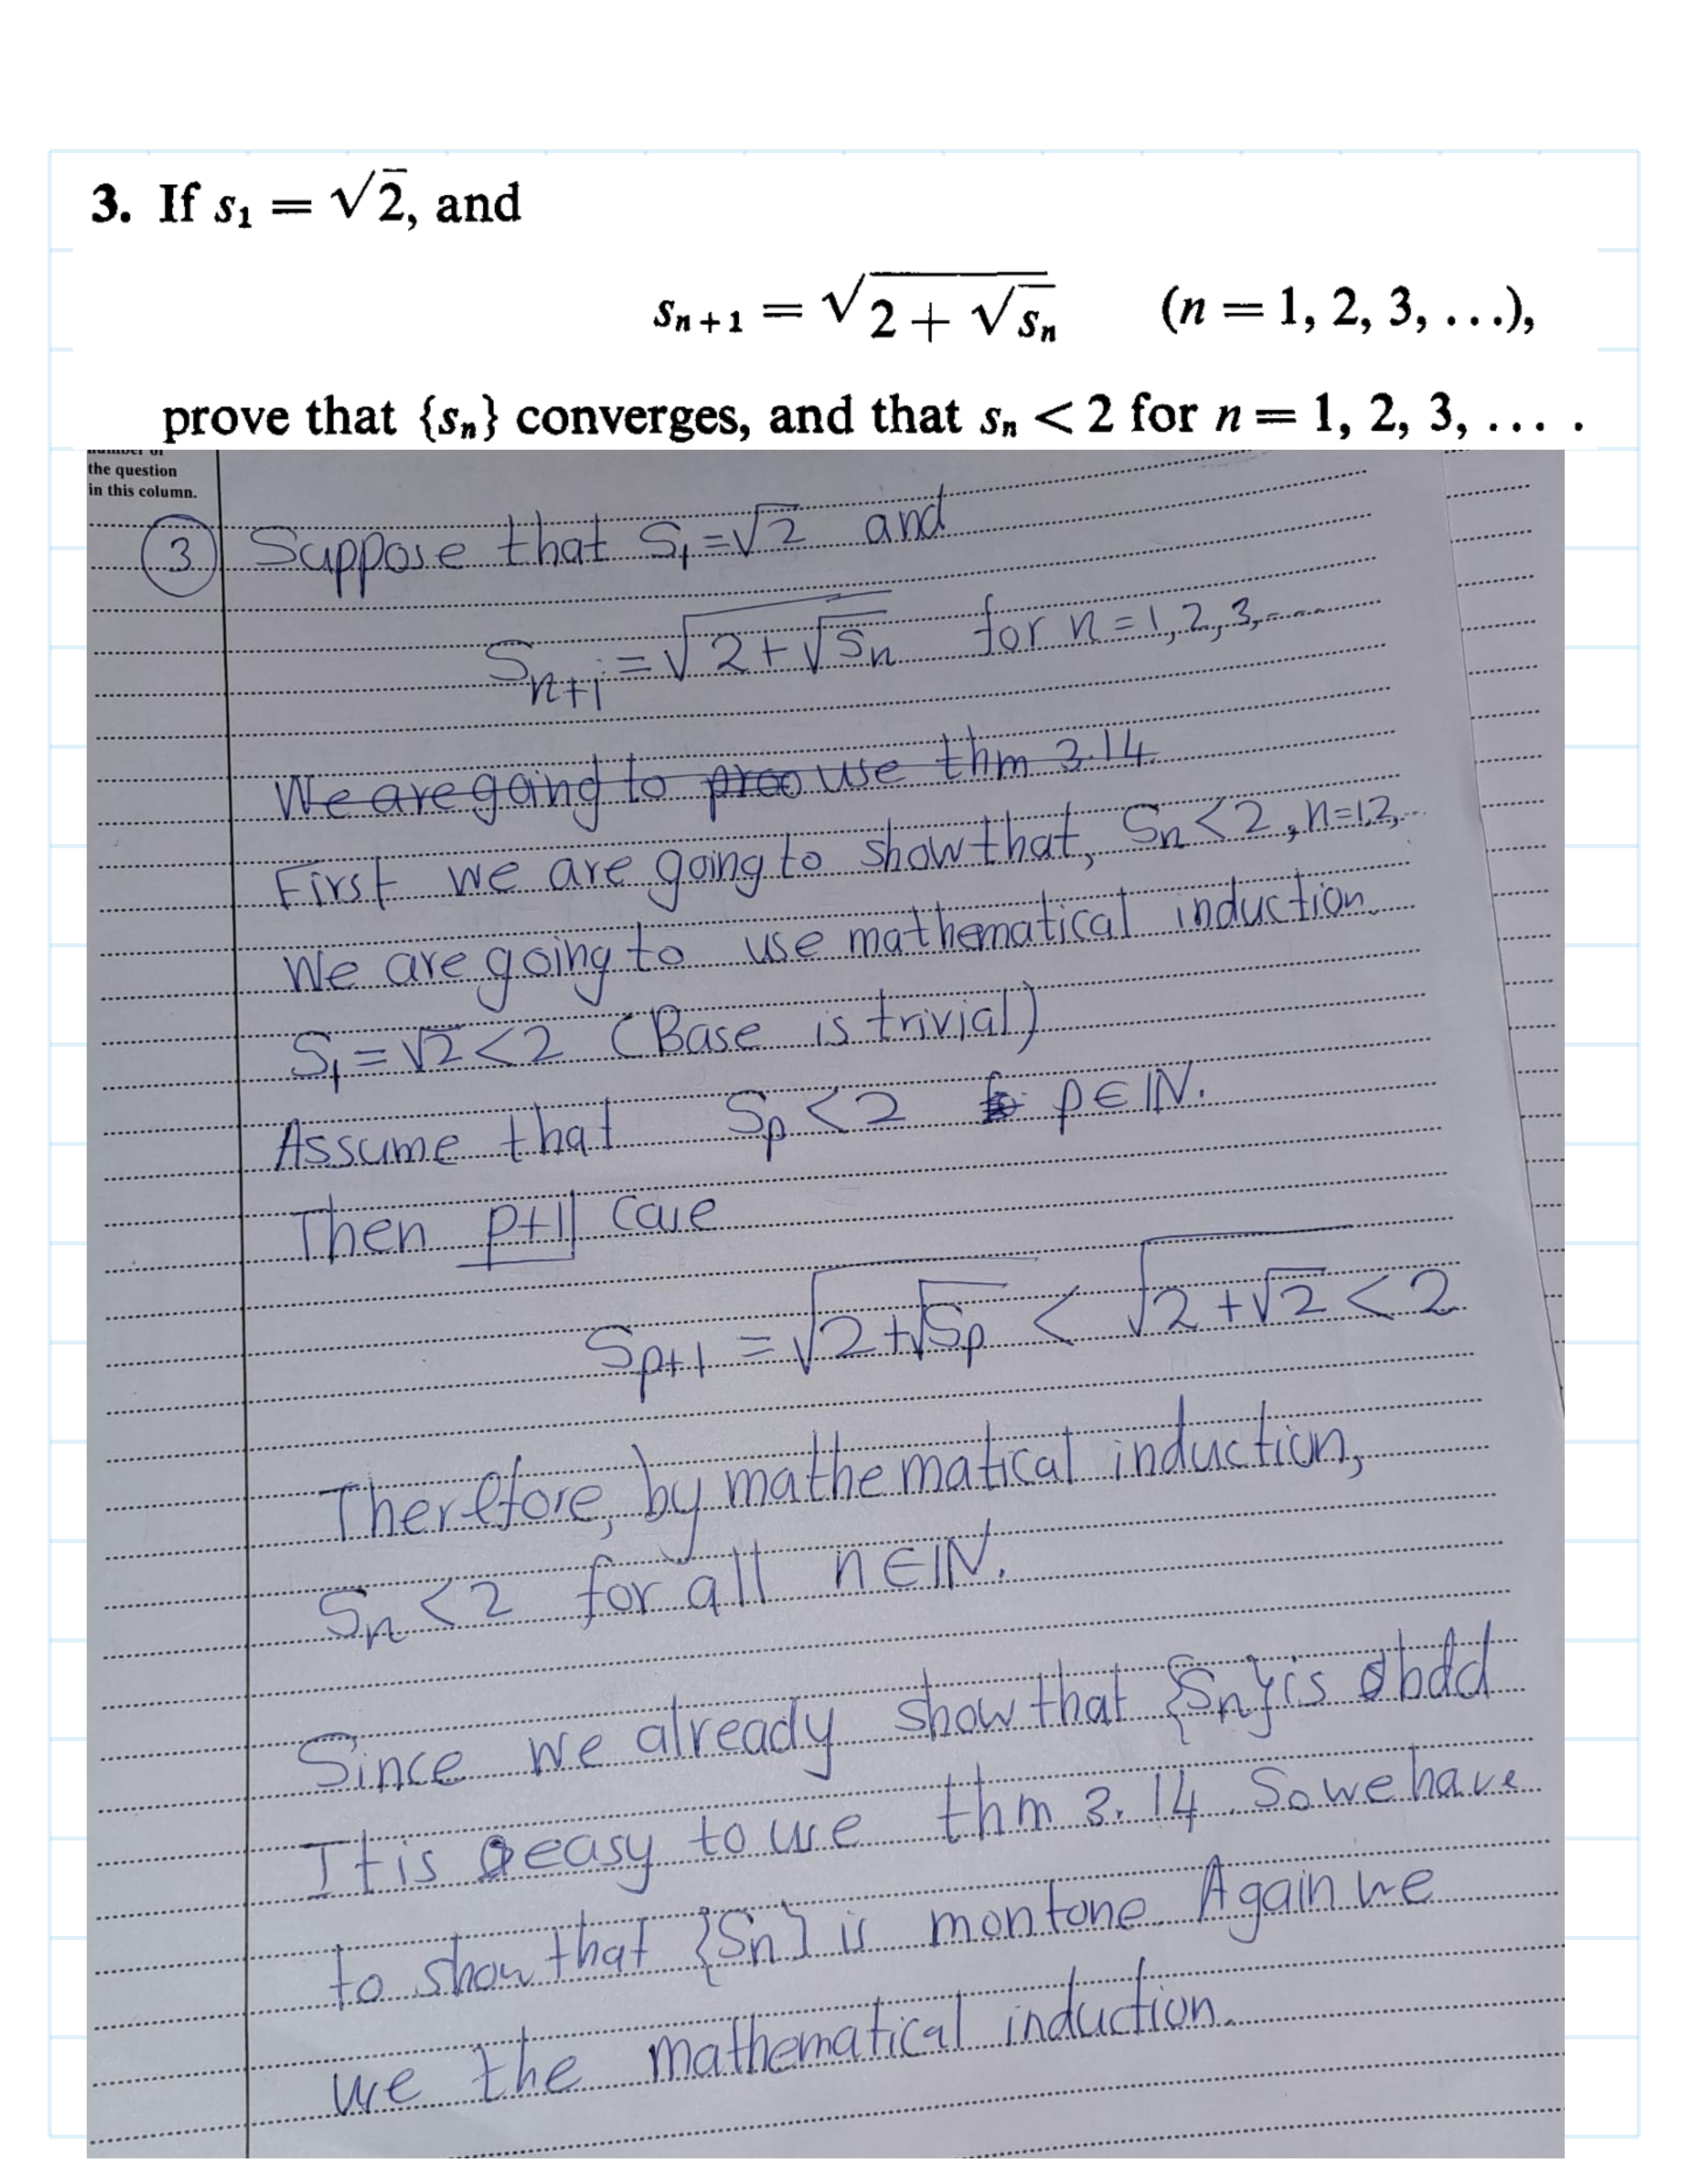 3. If s₁ = √2, and
sₙ₊₁ = √(2 + √sₙ) (n = 1, 2, 3, ...),
prove that {sₙ} converges, and that sₙ < 2 for n = 1, 2, 3, ... .
the question
in this column.
③ Suppose that S₁ = √2 and
Sₙ₊₁ = √(2 + √Sₙ) for n = 1, 2, 3, ....
We are going to proo use thm 3.14.
First we are going to show that, Sₙ < 2, n=1,2,...
We are going to use mathematical induction.
S₁ = √2 < 2 (Base is trivial)
Assume that Sp < 2 p ∈ ℕ.
Then p+1 case
Sp+1 = √(2+√Sp) < √(2+√2) < 2
Therefore, by mathematical induction,
Sₙ < 2 for all n ∈ ℕ.
Since we already show that {Sn} is bdd
It is easy to use thm 3.14. So we have
to show that {Sn} is montone. Again we
use the mathematical induction.